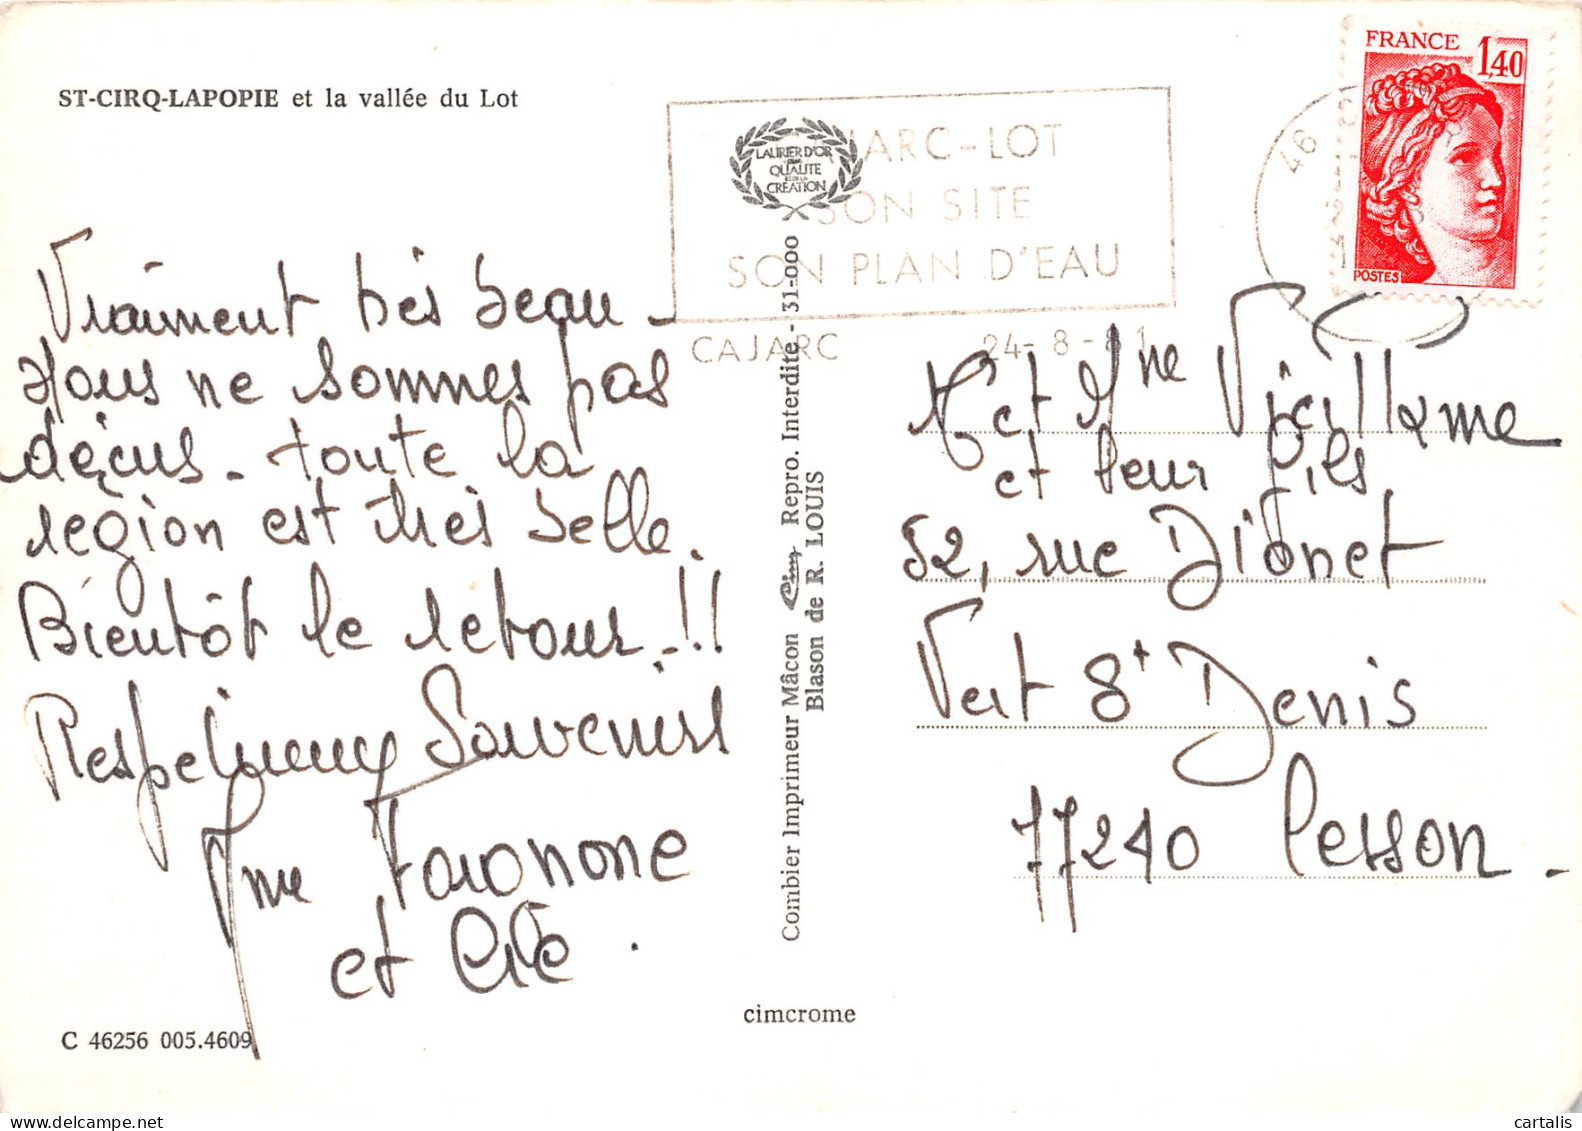 ST-CIRQ-LAPOPIE et la vallée du Lot
Vraiment très beau -
Nous ne sommes pas
déçus - toute la
région est très belle.
Bientôt le retour.!!
Respectueux Souvenirs
Mme
et Cie.
C 46256 005.4609
LAURIER D'OR
DE LA
QUALITÉ
ET DE LA
CRÉATION
ARC-LOT
SON SITE
SON PLAN D'EAU
CAJARC 24-8-81
46
FRANCE 1,40
POSTES
Combier Imprimeur Mâcon Cim Repro. Interdite - 31-000
Blason de R. LOUIS
cimcrome
M. et Mme Vieillame
et leur fils
52, rue Dionet
Vert St Denis
77240 Cesson.
cartalis